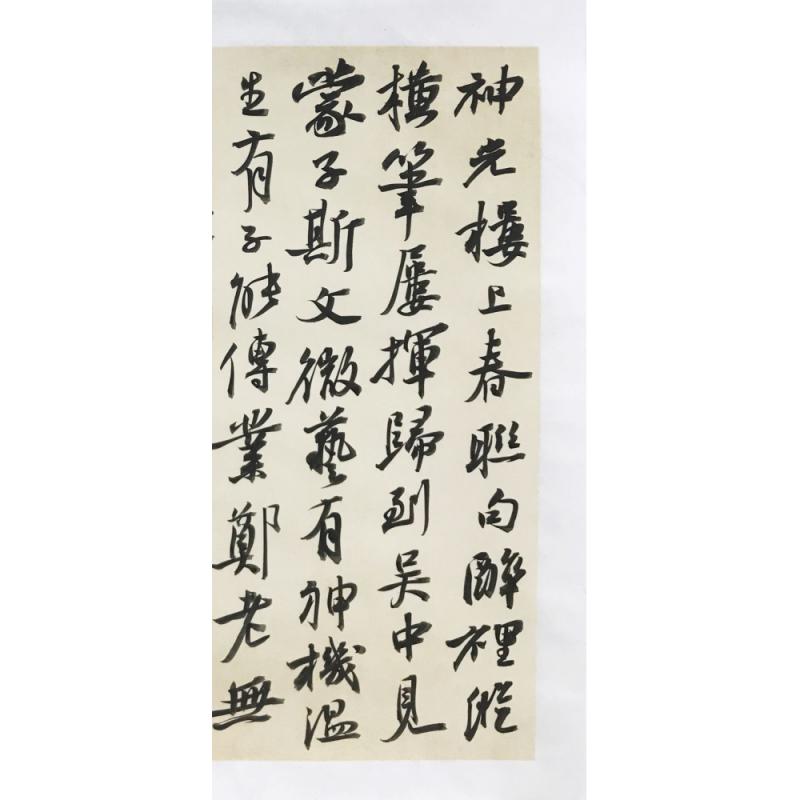 神光樓上春聯句醉裡縱
橫筆屢揮歸到吳中見
蒙子斯文微藝有神機溫
生有子能傳業鄭老無